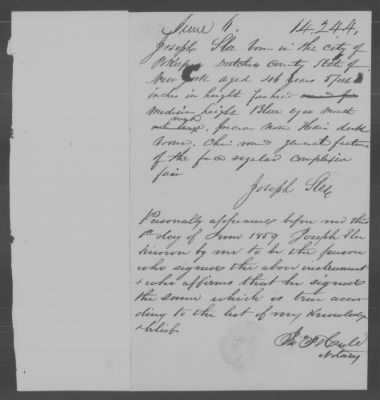 June 6. 14.244.
Joseph Slee born in the city of
Pokeepsie Dutchess County State of
New York aged 46 years 5 feet 8
inches in height
medium height Blue eyes mouth
nose Hair dark
brown, Chin round general features
of the face regular complexion
fair
Joseph Slee
Personally appeared before me this
day of June 1859 Joseph Slee
known by me to be the person
who signed the above instrument
& who affirms that he signed
the same which is true accor
ding to the best of my Knowledge
& belief.
Notary